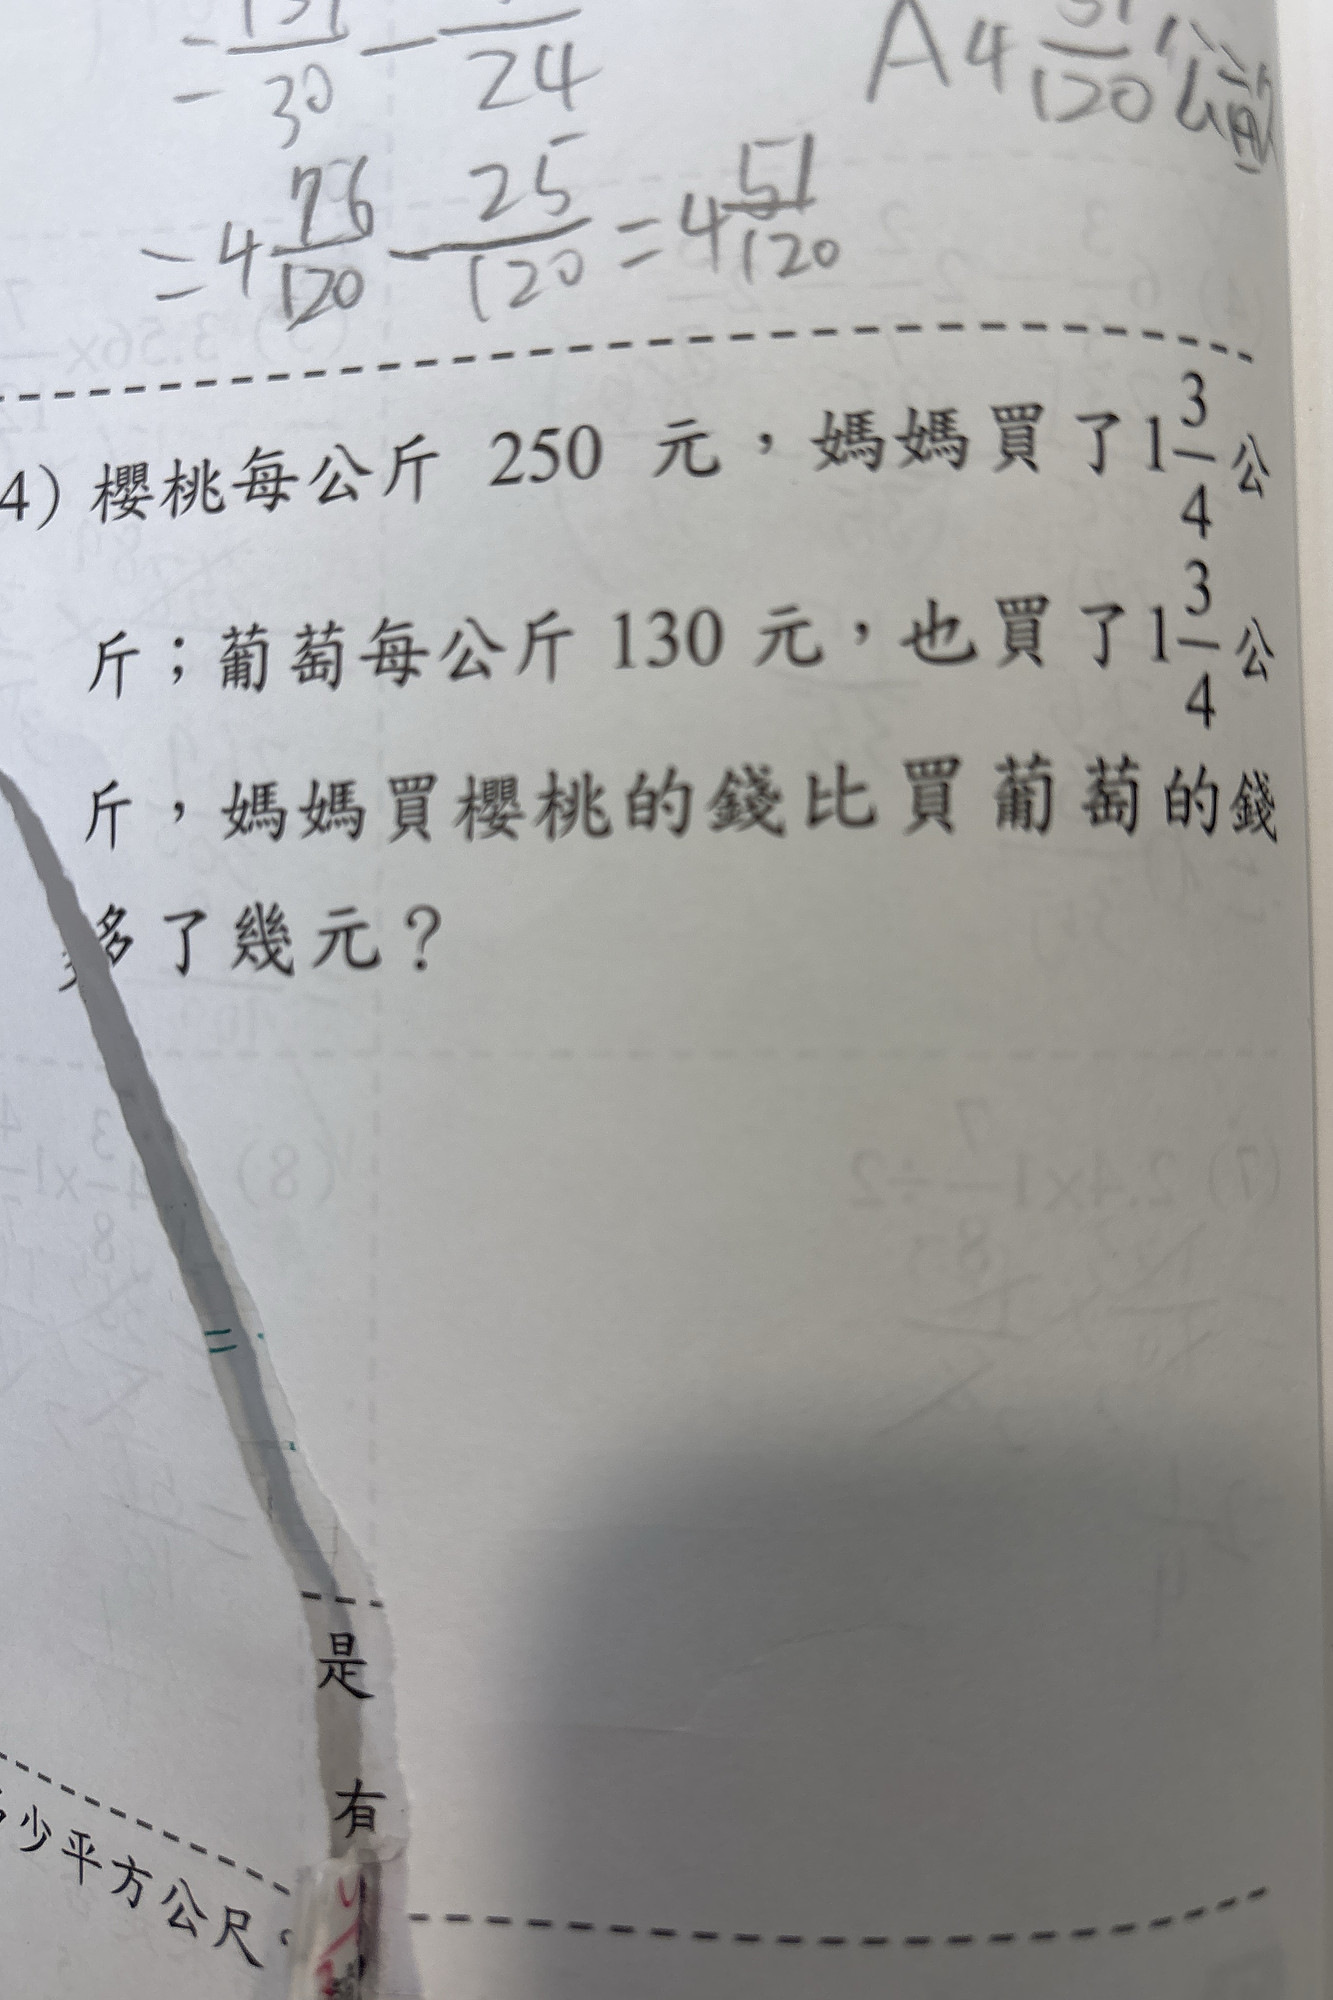 = 131/30 − /24
A 4 51/120 公噸
= 4 76/120 − 25/120 = 4 51/120
4) 櫻桃每公斤 250 元，媽媽買了1 3/4 公
斤；葡萄每公斤 130 元，也買了1 3/4 公
斤，媽媽買櫻桃的錢比買葡萄的錢
多了幾元？
是
有
少平方公尺。